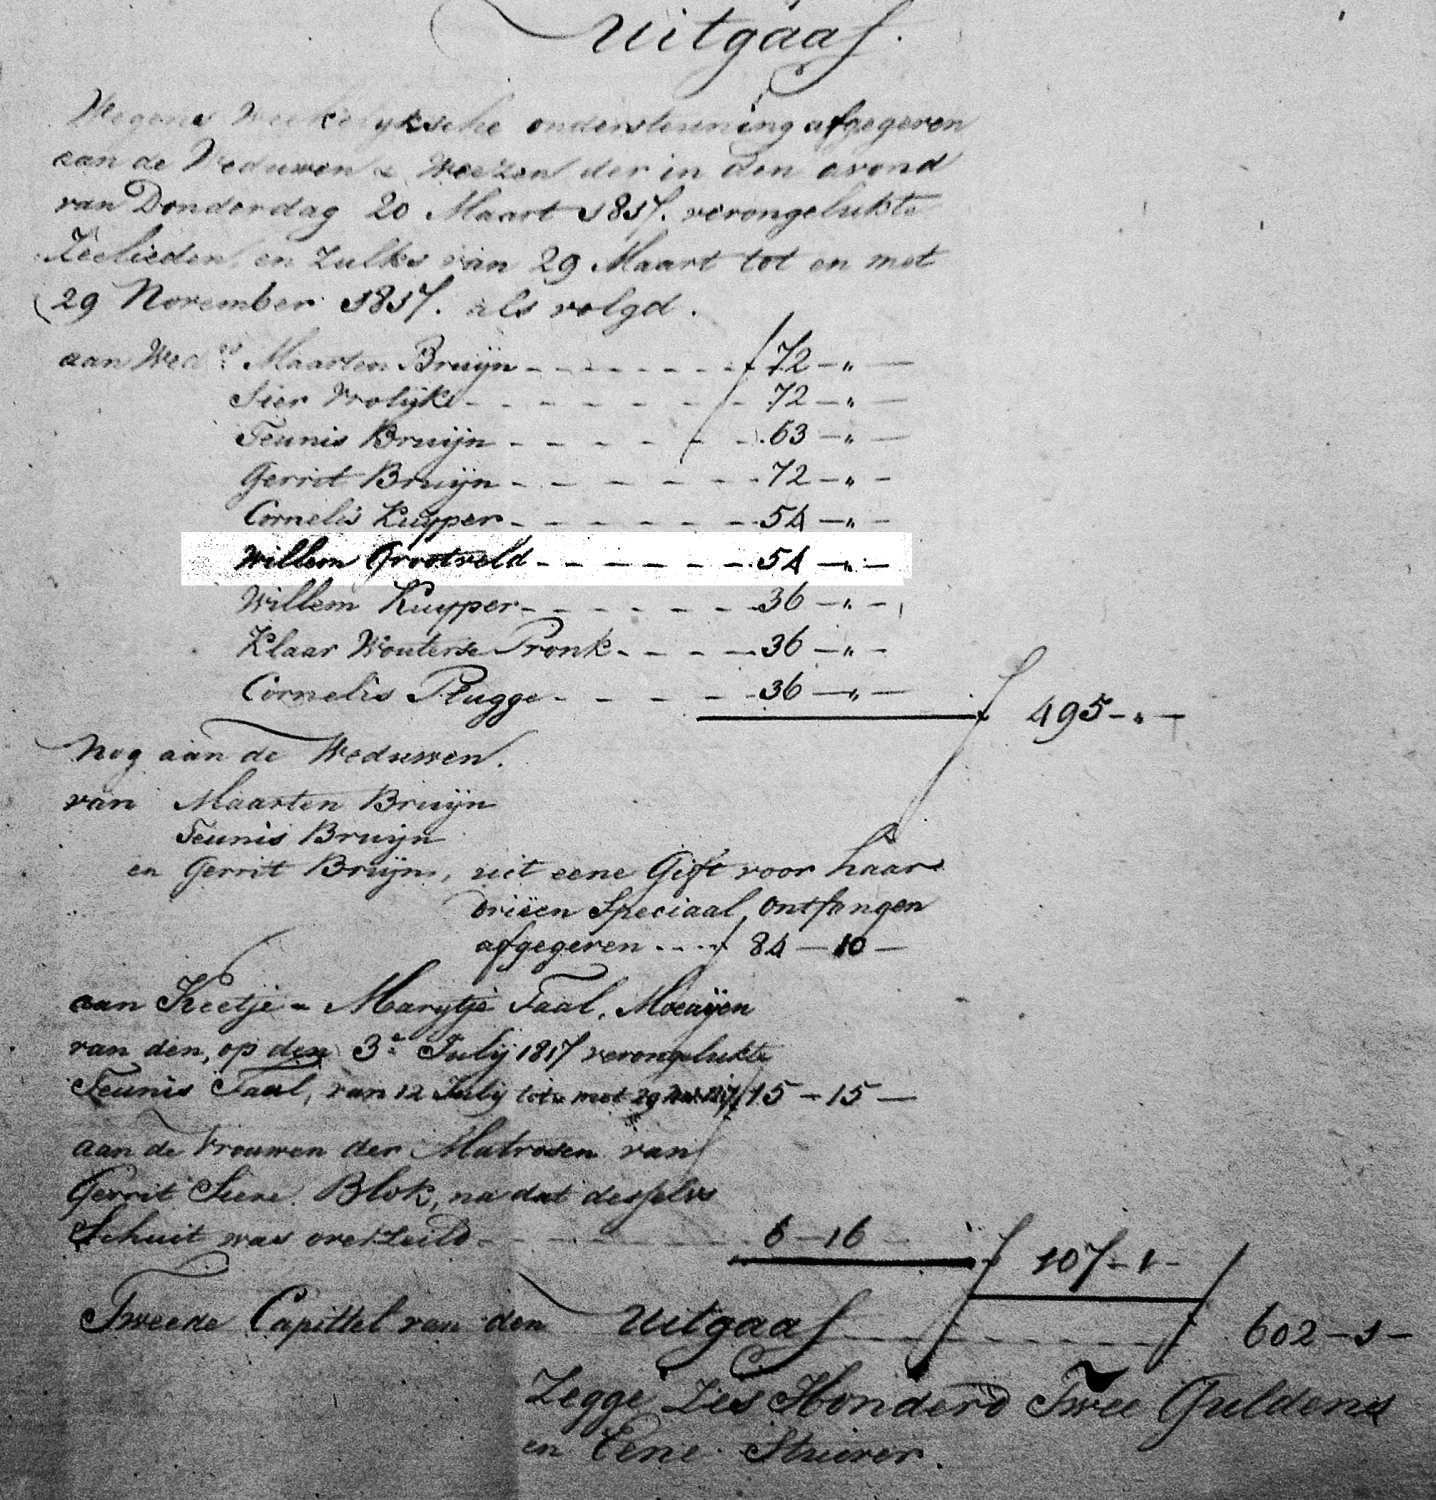 Uitgaaf.
Wegens Weekelyksche ondersteuning afgegeven
aan de Weduwen & Weezen der in den avond
van Donderdag 20 Maart 1817. verongelukte
Zeelieden en zulks van 29 Maart tot en met
29 November 1817. als volgd.
aan Wed.e Maarten Bruijn - - - - - - ƒ 72 - " -
Sier Vrolijk - - - - - - 72 - " -
Teunis Bruijn - - - - - 63 - " -
Gerrit Bruijn - - - - - 72 - " -
Cornelis Kuyper - - - - - 54 - " -
Willem Grootveld - - - - - 54 - " -
Willem Kuyper - - - - - 36 - " -
Klaar Wouterse Pronk - - - - 36 - " -
Cornelis Plugge - - - - - 36 - " -
ƒ 495 - " -
Nog aan de Weduwen.
van Maarten Bruijn
Teunis Bruijn
en Gerrit Bruijn, uit eene Gift voor haar
driëen Speciaal, ontfangen
afgegeven - - - ƒ 84 - 10 -
aan Keetje & Marytje Taal, Moeaÿen
van den, op den 3e July 1817 verongelukte
Teunis Taal, van 12 July tot & met 29 15 - 15 -
aan de Vrouwen der Matrosen van
Gerrit Siere Blok, na dat desselvs
Schuit was overzeild - - - - - 6 - 16 -
ƒ 107 - 1 -
Tweede Capittel van den Uitgaaf - - - - - ƒ 602 - 1 -
Zegge Zes Honderd Twee Guldens
en Eene Stuiver.